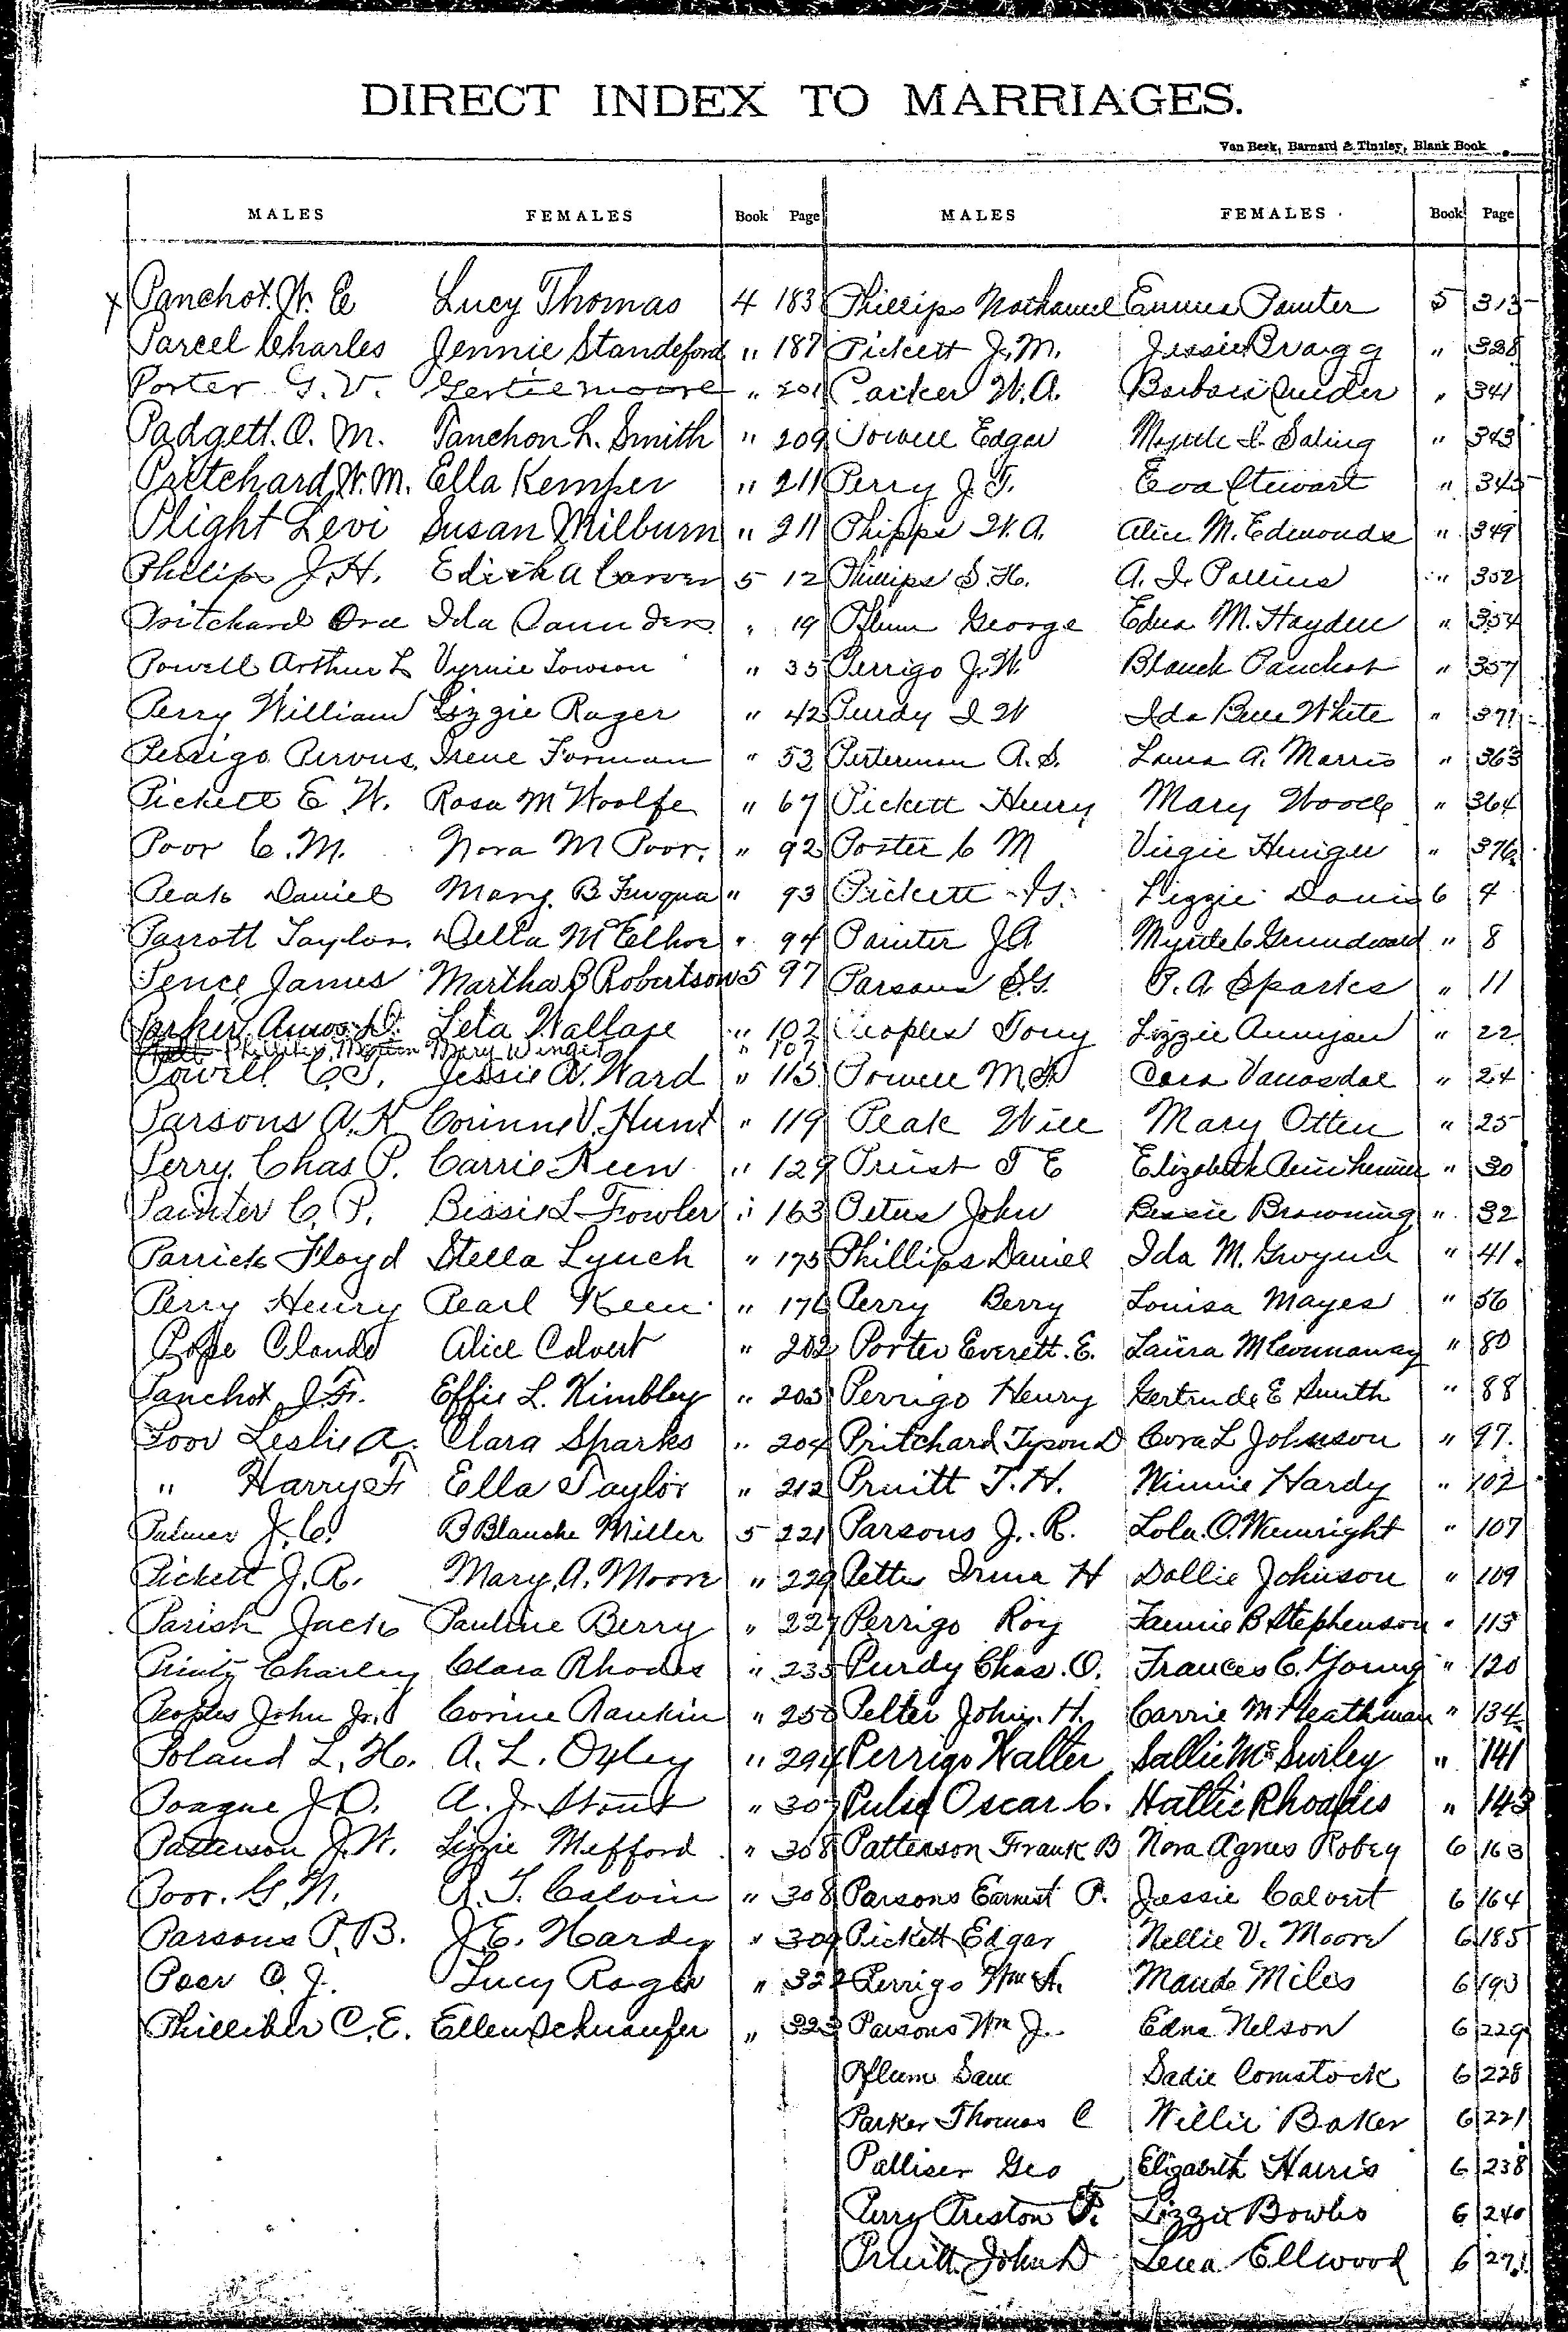 DIRECT INDEX TO MARRIAGES.
Van Beek, Barnard & Tinsley, Blank Book
MALES FEMALES Book Page MALES FEMALES Book Page
x Panchot. W. E Lucy Thomas 4 183
Parcel Charles Jennie Standeford " 187
Porter G. V. Gertie Moore " 201
Padgett. O. M. Fanchon L. Smith " 209
Pritchard, W. M. Ella Kemper " 211
Plight Levi Susan Milburn " 211
Philips J. H. Edith A Carver 5 12
Pritchard Ora Ida Saunders " 19
Powell Arthur L Vyrnie Towson " 35
Perry William Lizzie Rager " 42
Perrigo Pervous Irene Forman " 53
Pickett E. W. Rosa M Woolfe " 67
Poor C. M. Nora M Poor. " 92
Peak Daniel Mary. B Fuqua " 93
Parrott Taylor Della McElhoe " 94
Pence James Martha B Robertson 5 97
Parker Amos D. Leta Wallace " 102
Philliber, Martin Mary Winget " 107
Powell C. T. Jessie A. Ward " 113
Parsons A. K Corinne V. Hunt " 119
Perry. Chas P. Carrie Keen " 129
Painter C. P. Bessie L Fowler " 163
Parrick Floyd Stella Lynch " 175
Perry Henry Pearl Keen " 176
Pope Claude Alice Calvert " 202
Panchot J. F. Effie L. Kimbley " 203
Poor Leslie A. Clara Sparks " 204
" Harry F Ella Taylor " 212
Palmer J. C. B Blanche Miller 5 221
Pickett J. R. Mary. A. Moore " 229
Parish Jack Pauline Berry " 227
Printz Charley Clara Rhodes " 235
Peoples John Jr. Corine Rankin " 250
Poland L. H. A. L. Oxley " 294
Poague J. D. A. J. Stout " 307
Patterson J. W. Lizzie Mefford " 308
Poor. G. N. R. T. Calvin " 308
Parsons P. B. J. E. Hardy " 309
Poer O. J. Lucy Rager " 322
Philliber C. E. Ellen Schnaufer " 323
Phillips Nathaniel Emma Painter 5 313
Pickett J. M. Jessie Bragg " 328
Parker W. A. Barbara " 341
Powell Edgar Myrtle I. Saling " 343
Perry J. T. Eva Stewart " 345
Phipps W. A. Alice M. Edmonds " 349
Phillips S. H. A. I. Pollins " 352
Pflum George Edna M. Hayden " 354
Perrigo J. W. Blanch Panchot " 357
Purdy I W Ida Belle White " 371
Peterman A. S. Laura A. Morris " 363
Pickett Henry Mary Woods " 364
Porter C M Virgie " 376
Pickett Lizzie Davis 6 4
Painter J A Myrtle C Grundward " 8
Parsons S. G. P. A. Sparks " 11
Peoples Tony Lizzie " 22
Powell M. F. Cora Vanosdol " 24
Peak Will Mary Otten " 25
Priest T E Elizabeth " 30
Petus John Bessie Browning " 32
Phillips Daniel Ida M. Gwynn " 41.
Perry Berry Louisa Mayes " 56
Porter Everett. E. Laura McConnaway " 80
Perrigo Henry Gertrude E Smith " 88
Pritchard Tyson D Cora L Johnson " 97.
Pruitt T. H. Winnie Hardy " 102
Parsons J. R. Lola. O. Wainright " 107
Pettis Irma H Dollie Johnson " 109
Perrigo Roy Fannie B Stephenson " 113
Purdy Chas. O. Frances C. Young " 120
Pelter John. H. Carrie M Heathman " 134
Perrigo Walter Sallie McSwiley " 141
Pulse Oscar C. Hattie Rhoades " 143
Patterson Frank B Nora Agnes Robey 6 163
Parsons Earnest P. Jessie Calvert 6 164
Pickett Edgar Nellie V. Moore 6 185
Perrigo Wm A. Maude Miles 6 193
Parsons Wm J. Edna Nelson 6 229
Pflum Sam Sadie Comstock 6 228
Parker Thomas C Willie Baker 6 221
Palliser Geo Elizabeth Harris 6 238
Perry Preston P. Lizzie Bowles 6 240
Pruitt John D Lena Ellwood 6 271